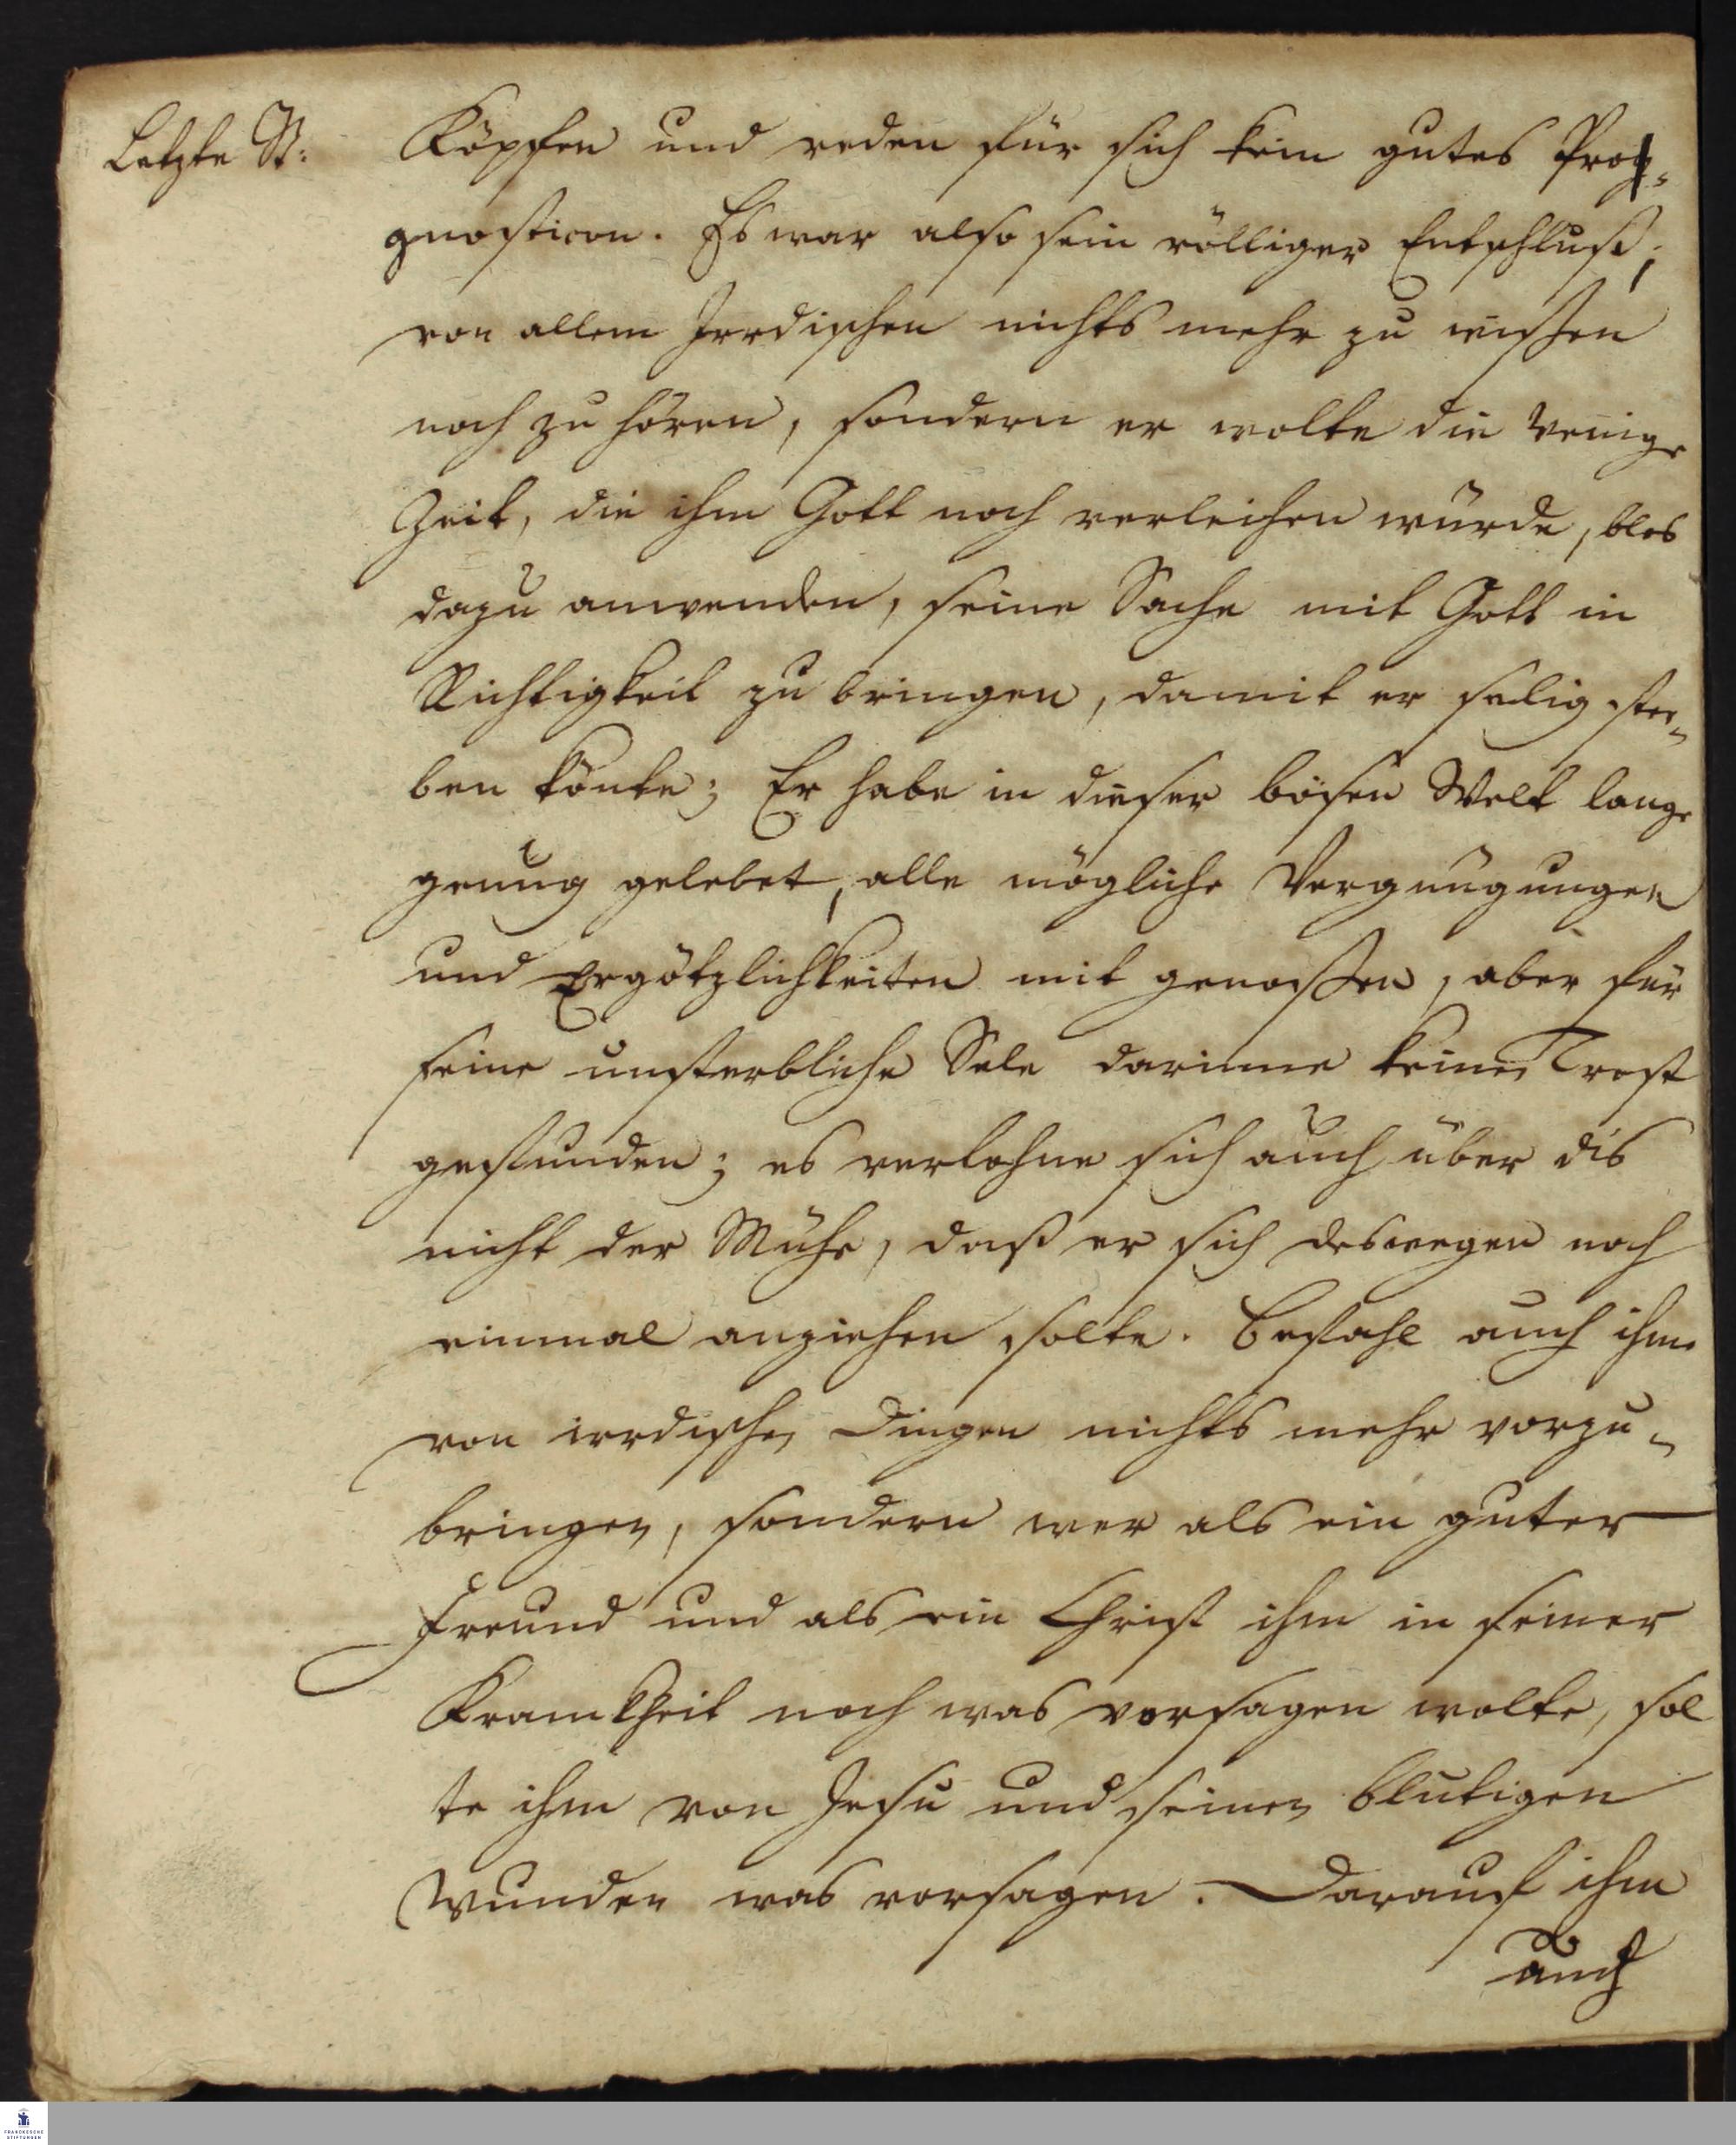 Letzte St:
Köpfen und reden für sich kein gutes Prog-
gnosticon. Es war also sein völliger Entschluß,
von allem Irrdischen nichts mehr zu wißen
noch zu hören, sondern er wolte die wenige
Zeit, die ihm Gott noch verleihen würde, blos
dazu anwenden, seine Sache mit Gott in
Richtigkeit zu bringen, damit er selig ster-
ben könte; Er habe in dieser bösen Welt lange
genug gelebet, alle mögliche Vergnügungen
und Ergötzlichkeiten mit genoßen, aber für
seine unsterbliche Sele darinne keinen Trost
gefunden; es verlohne sich auch über dis
nicht der Mühe, daß er sich deswegen noch
einmal anziehen solte. Befahl auch ihm
von irrdischen Dingen nichts mehr vorzu-
bringen, sondern wer als ein guter
Freund und als ein Christ ihm in seiner
Krankheit noch was vorsagen wolte, sol
te ihm von Jesu und seinen blutigen
Wunden was vorsagen. Darauf ihm
auch
FRANCKESCHE
STIFTUNGEN